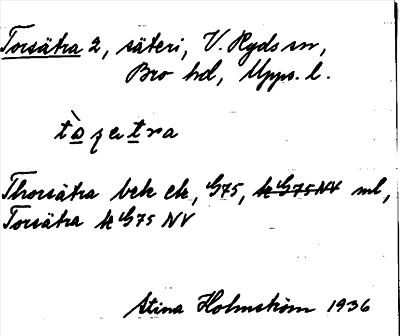 Torsätra 2, säteri, V. Ryds sn,
Bro hd, Upps. l.
Thorsätra bek ek, G75, k G75 NV ml,
Torsätra k G75 NV
Stina Holmström 1936